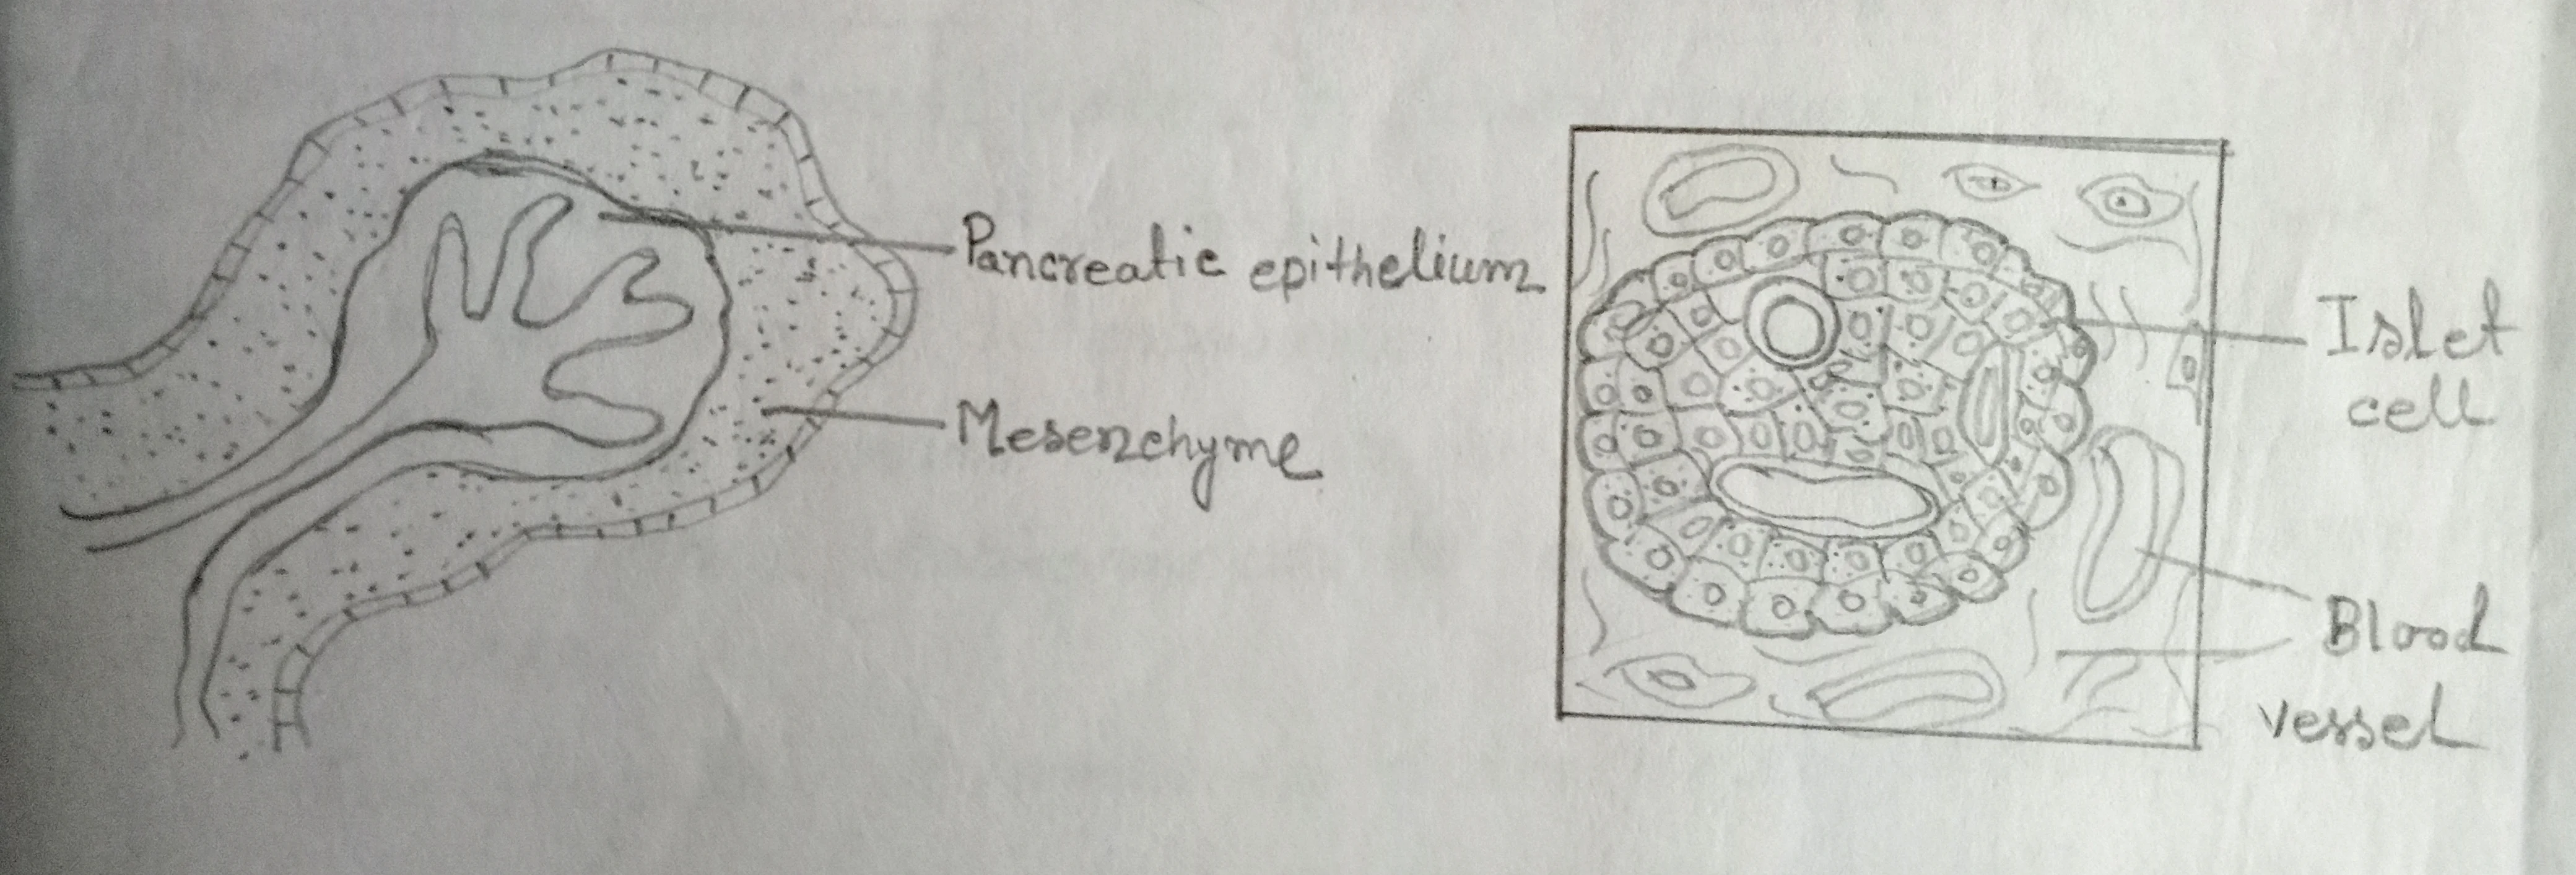 Pancreatic epithelium
Mesenchyme
Islet
cell
Blood
vessel